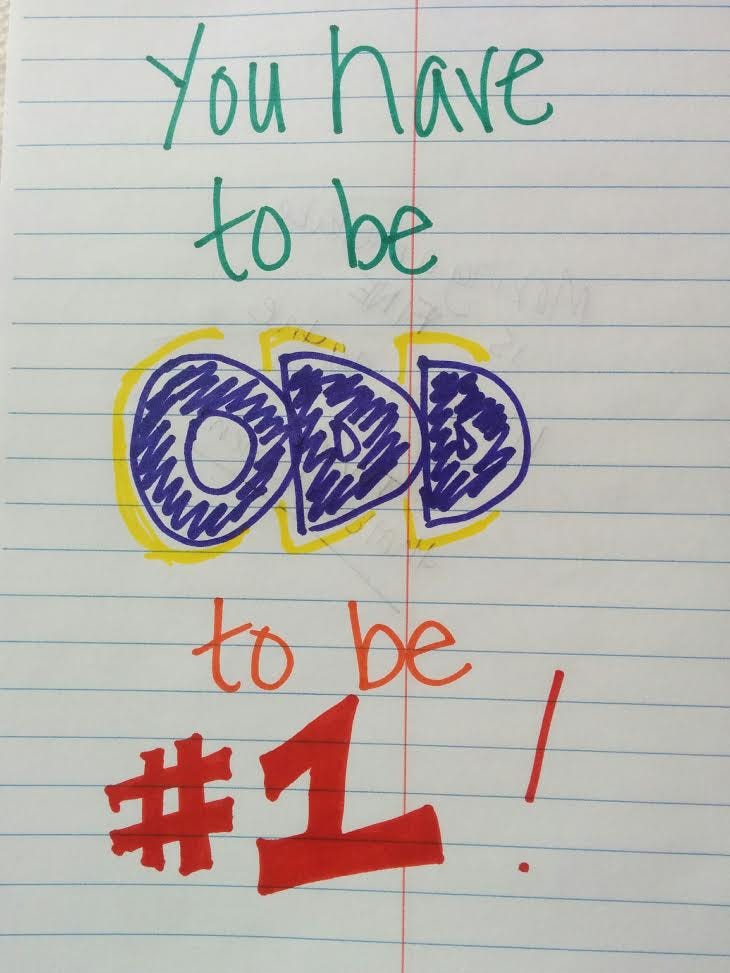 You have
to be
ODD
to be
#1!